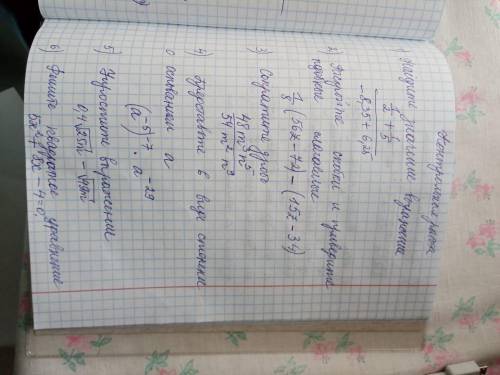 Контрольная работа
1) Найдите значение выражения
1/2 + 1/5
-8,55 + 6,25
2) Раскройте скобки и приведите
подобные слагаемые
1/8 (56x - 72) - (15x - 3)
3) Сократите дробь
48 m³ n⁵
54 m² n³
4) Представьте в виде степени
с основанием a
(a⁻⁵)⁷ · a⁻²⁹
5) Упростите выражение
0,4
6) Решите квадратное уравнение
5x² + 8x - 4 = 0